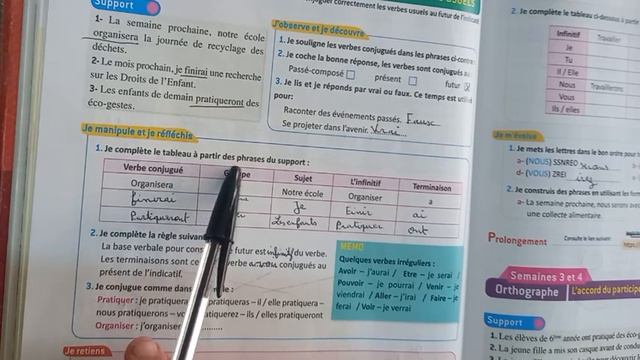 Support
1- La semaine prochaine, notre école
organisera la journée de recyclage des
déchets.
2- Le mois prochain, je finirai une recherche
sur les Droits de l'Enfant.
3- Les enfants de demain pratiqueront des
éco-gestes.
correctement les verbes usuels au futur de l'indicatif
J'observe et je découvre
1. Je souligne les verbes conjugués dans les phrases ci-contre
2. Je coche la bonne réponse, les verbes sont conjugués au
Passé-composé présent futur
3. Je lis et je réponds par vrai ou faux. Ce temps est utilisé
pour:
Raconter des événements passés. Faux
Se projeter dans l'avenir. Vrai
Je manipule et je réfléchis
1. Je complète le tableau à partir des phrases du support :
Verbe conjugué Sujet L'infinitif Terminaison
Organisera Notre école Organiser a
finirai Je Finir ai
Pratiqueront Les enfants Pratiquer ont
2. Je complète la règle suivan
La base verbale pour cons futur est infinitif du verbe.
Les terminaisons sont ce verbe conjugués au
présent de l'indicatif.
3. Je conjugue comme dans :
Pratiquer : je pratiquera pratiqueras – il / elle pratiquera –
nous pratiquerons – vo atiquerez – ils / elles pratiqueront
Organiser : j'organiser
MEMO
Quelques verbes irréguliers :
Avoir – j'aurai / Etre – je serai /
Pouvoir – je pourrai / Venir – je
viendrai / Aller – j'irai / Faire – je
ferai / Voir – je verrai
Je retiens
2. Je complète le tableau ci-dessous à
Infinitif Travailler
Je
Tu
Il / Elle
Nous Travaillerons
Vous
Ils / elles
Je m'évalue
1. Je mets les lettres dans le bon ordre pour
a- (NOUS) SSNREO
d- (VOUS) ZREI
2. Je construis des phrases en utilisant les
a- La semaine prochaine, nous serons avec
une collecte alimentaire.
Prolongement Consulte le lien suivant:
Semaines 3 et 4
Orthographe L'accord du participe
Support
1. Les élèves de 6ème année ont pratiqué des éco-g
2. La jeune fille a mis son casque avant de condui